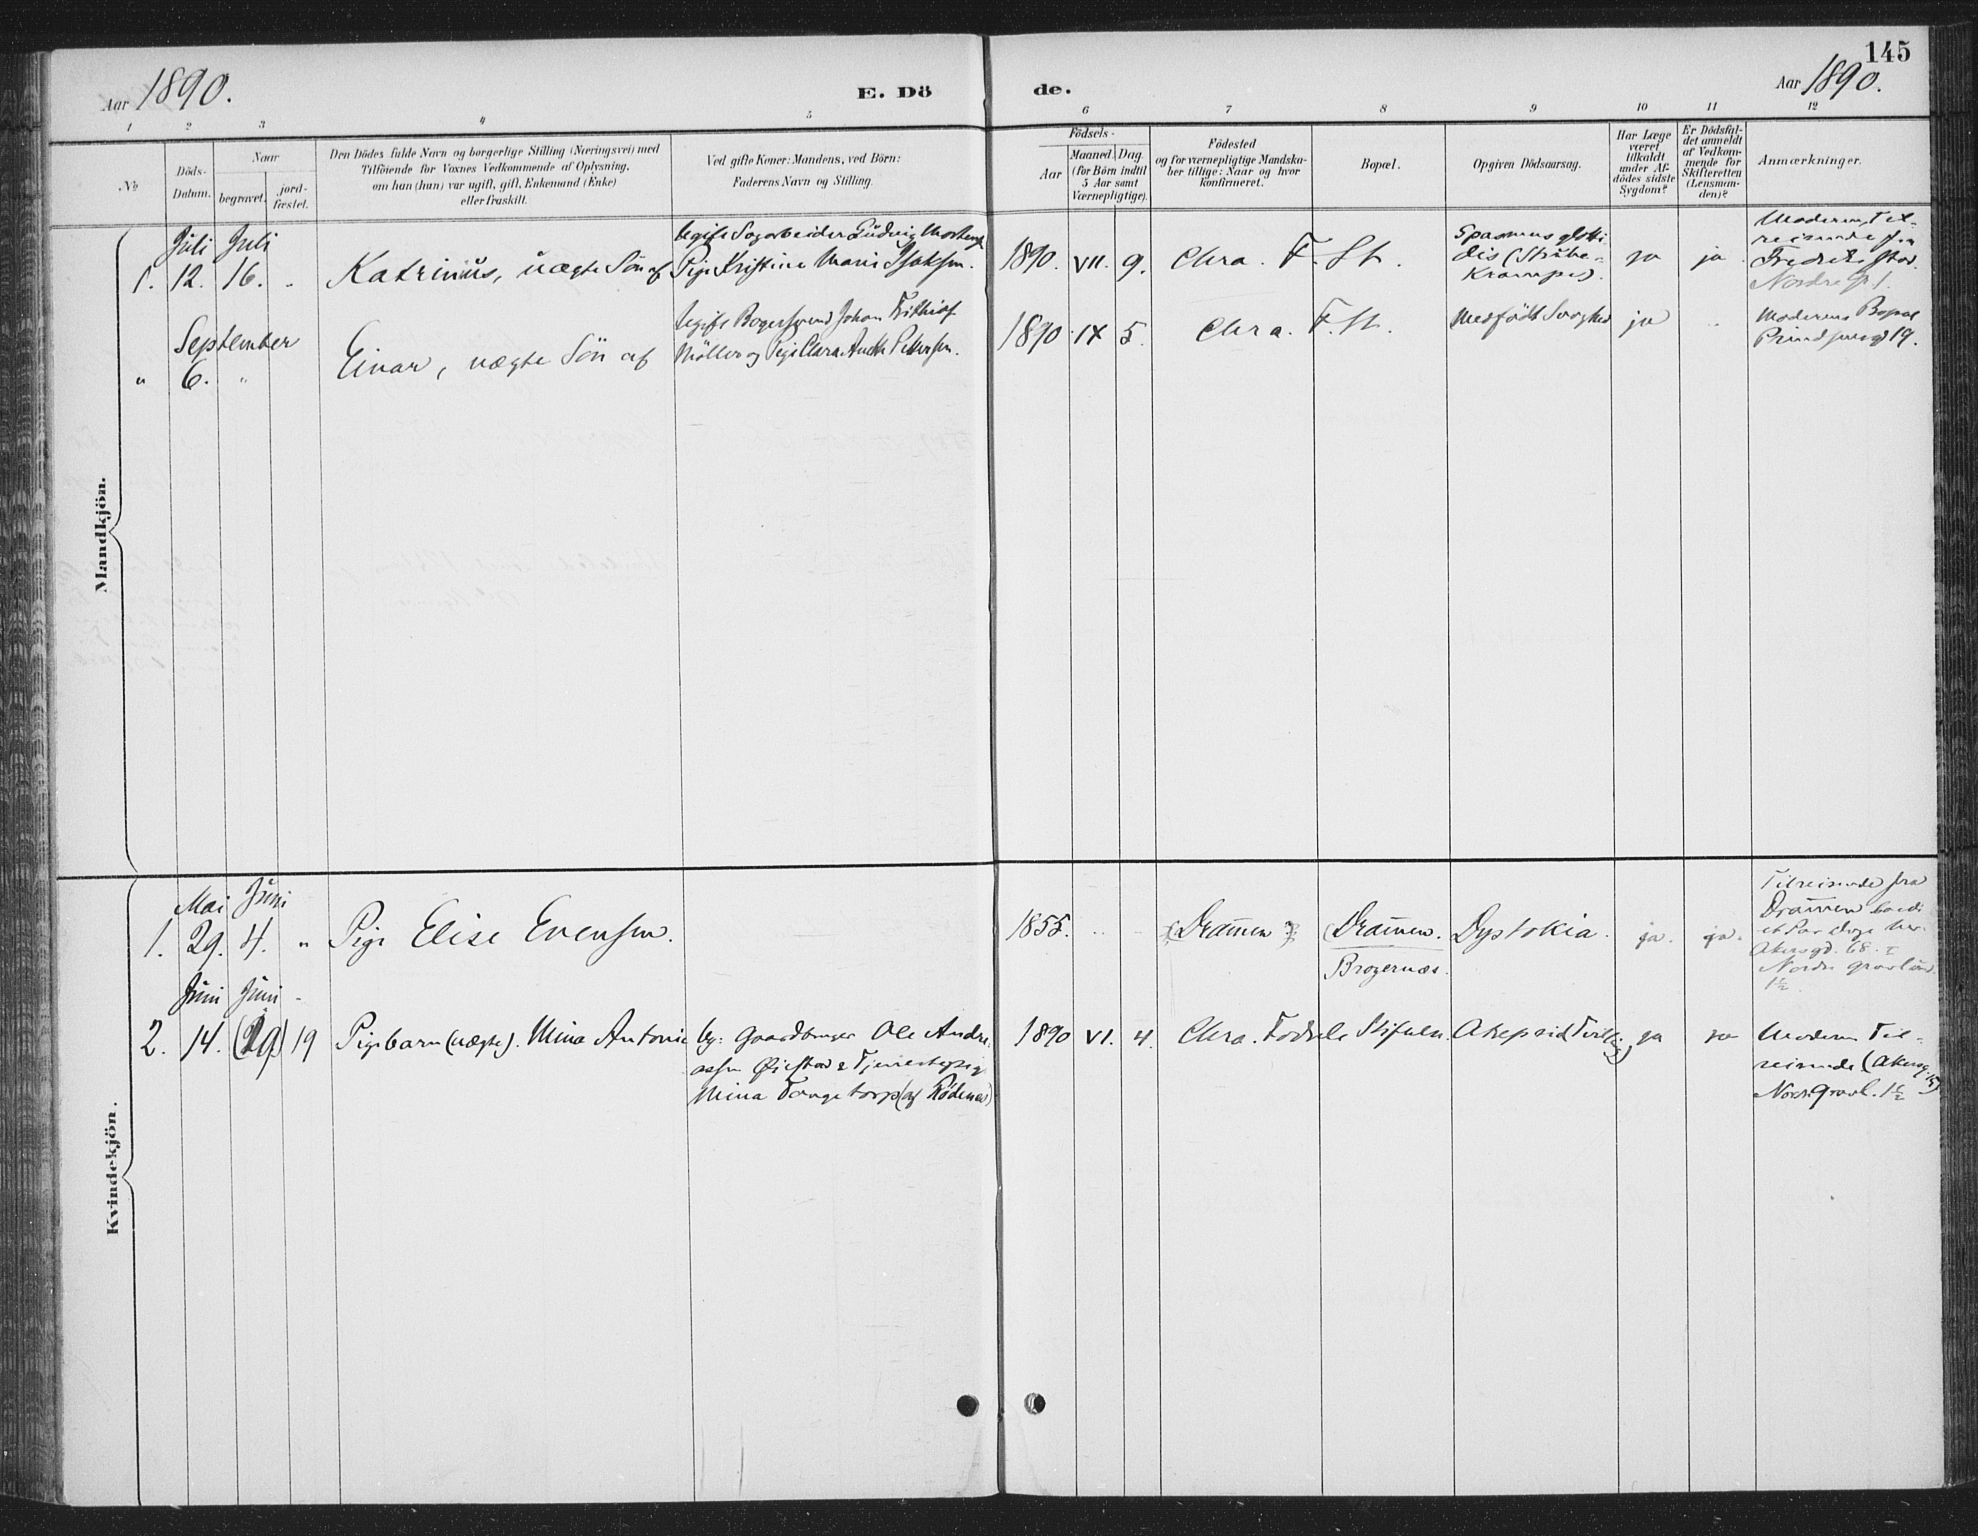 145
Aar 1890.
E. Dö
de.
Aar 1890.
1 2 3 4 5 6 7 8 9 10 11 12
No
Döds-
Datum.
Naar
begravet.
jord-
fæstet.
Den Dödes fulde Navn og borgerlige Stilling (Næringsvei) med
Tilföiende for Voxnes Vedkommende af Oplysning,
om han (hun) var ugift, gift, Enkemand (Enke)
eller fraskilt.
Ved gifte Koner: Mandens, ved Börn:
Faderens Navn og Stilling.
Födsels-
Aar
Maaned. Dag.
(for Börn indtil
5 Aar samt
Værnepligtige).
Födested
og for værnepligtige Mandska-
ber tillige: Naar og hvor
konfirmeret.
Bopæl.
Opgiven Dödsaarsag.
Har Læge
været
tilkaldt
under Af-
dödes sidste
Sygdom?
Er Dödsfal-
det anmeldt
af Vedkom-
mende for
Skifteretten
(Lensman-
den)?
Anmærkninger.
Mandkjön.
Juli Juli
1. 12. 16. „ Katrinus, uægte Sön af
Ugift Sagarbeider Ludvig
Pige Kristine Marie Isaksen.
1890. VII. 9. Chra. F. St.
Spasmus glotti
dis (Strube-
Krampe).
ja ja
Moderen Til-
reisende fra
Fredrikstad.
Nordre
September
„ 6. „ Einar, uægte Sön af
Ugift Johan Frithiof
Möller og Pige Clara Petersen.
1890 IX 5. Chra. F. St.
Medfödt Svaghed
ja „
Moderens Bopæl
19.
Kvindekjön.
Mai Juni
1. 29. 4. „ Pige Elise Evensen.
1855. „ „ Dramen Dramen.
Bragernæs.
Dystokia.
ja. ja.
Tilreisende fra
Dramen boede
et Par Dage her
Akersgd. 68.
Nordre Gravlund
1½
Juni Juni „
2. 14. (19) 19 Pigebarn (uægte). Mina Antonie
Ug. Gaardbruger Ole Andre-
assen & Tjenestepige
Mina Tangetorp (af Rödenes)
1890 VI. 4. Chra. Födsels Stiftelsen.
ja ja
Moderen Til-
reisende (Akersg.
Nordre Gravl. 1½